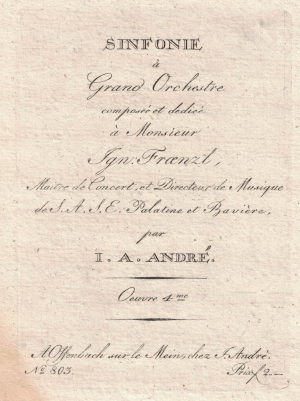 SINFONIE
à
Grand Orchestre
composée et dediée
à Monsieur
Ign: Frænzl,
Maitre de Concert, et Directeur de Musique
de S. A. S. E. Palatine et Bavière,
par
I. A. ANDRÉ.
Oeuvre 4me
A Offenbach sur le Mein, chez J. André.
No 803. Prix f 2 —